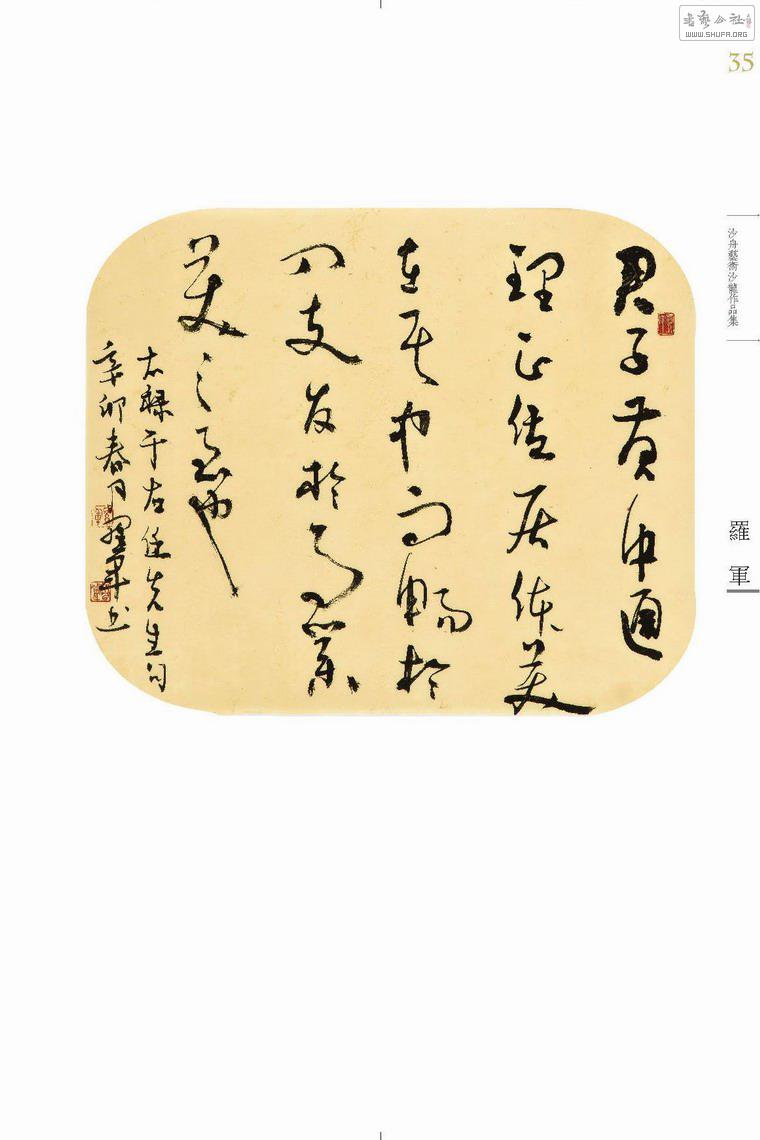 書藝公社
WWW.SHUFA.ORG
35
沙舟藝術沙龍作品集
羅軍
君子黄中通
理正位居体美
在其中而暢於
四支发於事業
美之至也
右録于右任先生句
辛卯春月羅軍书